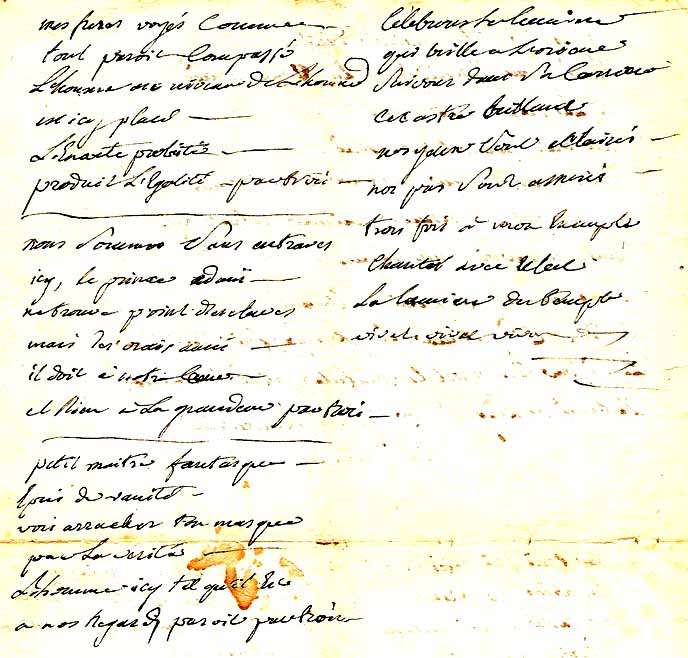 mes freres voyés Comme
tout paroit Compassé
L'homme au niveau de L'homme
est icy placé
L'Exacte probité
produit L'Egalité par trois
nous Sommes Sans entraves
icy, le prince admis
ne trouve point d'esclaves
mais des vrais amis
il doit à notre Cœur
et Rien a La grandeur par trois
petit maitre fantasque
Epris de vanité
vois arracher ton masque
par La verité
L'homme icy tel qu'il Est
a nos Regards paroit par trois
Celebrons La Lumiere
qui brille a L'orient
Suivons dans Sa Carriere
cet astre brillant
nos yeux Sont eclairés
nos pas Sont assurés
trois fois à mon Exemple
Chantés avec Zele
La Lumiere du temple
vivat vivat vivat